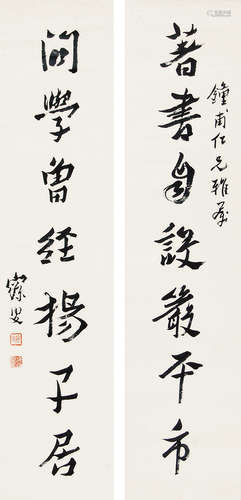 鐘甫仁兄雅屬
著書自設嚴平市
問學曾經揚子居
寐叟